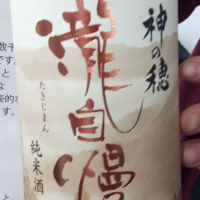 神の穂
瀧自慢
たきじまん
純米酒
数千
です。
と
な
と